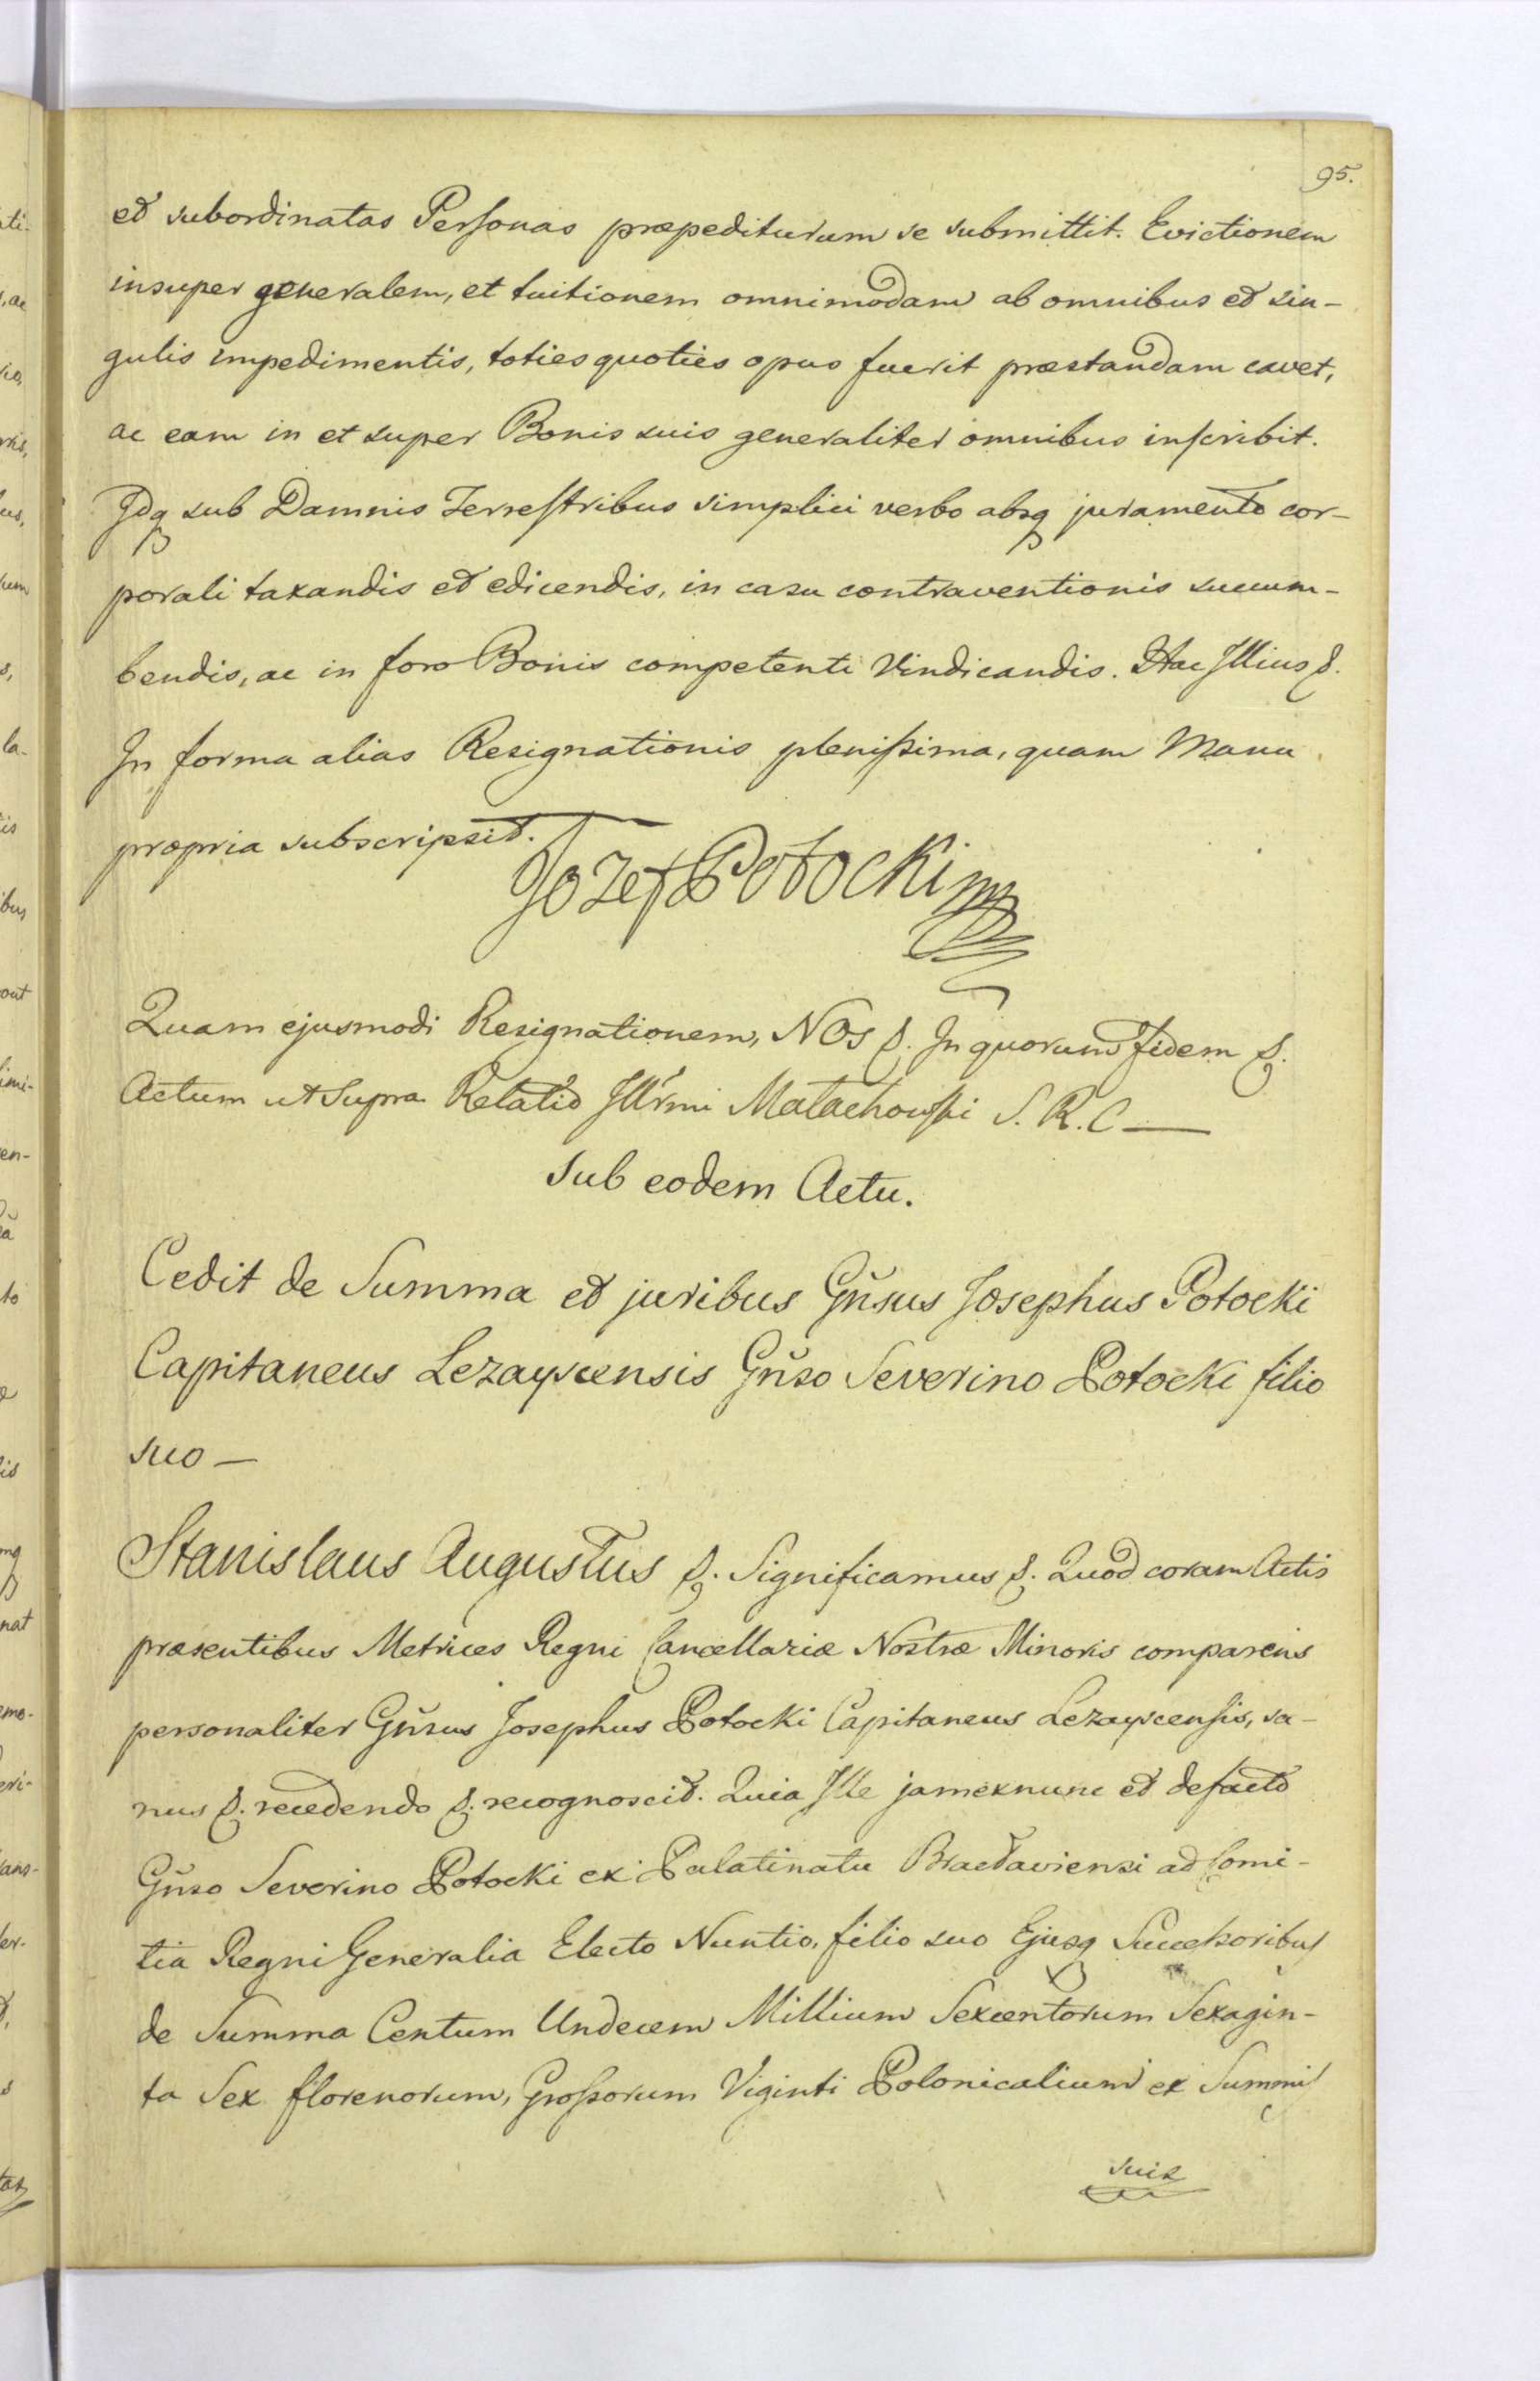 95.
et subordinatas Personas præpediturum se submittit. Evictionem
insuper generalem, et tuitionem omnimodam ab omnibus et sin-
gulis impedimentis, toties quoties opus fuerit præstandam cavet,
ac eam in et super Bonis suis generaliter omnibus inscribit.
Idq sub Damnis Terrestribus simplici verbo absq juramento cor-
porali taxandis et edicendis, in casu contraventionis succum-
bendis, ac in foro Bonis competenti Vindicandis. Hac Illius &.
In forma alias Resignationis plenissima, quam Manu
propria subscripsit.
Jozef Potocki mp
Quam ejusmodi Resignationem, NOS &. In quorum fidem &.
Actum ut Supra Relatio Illrmi Małachowski S. R. C —
Sub eodem Actu.
Cedit de Summa et juribus Gn̆sus Josephus Potocki
Capitaneus Lezayscensis Gn̆so Severino Potocki filio
suo —
Stanislaus Augustus &. Significamus &. Quod coram Actis
præsentibus Metrices Regni Cancellariæ Nostræ Minoris comparens
personaliter Gn̆sus Josephus Potocki Capitaneus Lezayscensis, sa-
nus &. recedendo &. recognoscit. Quia Ille jam exnunc et defacto
Gn̆so Severino Potocki ex Palatinatu Braclaviensi ad Comi-
tia Regni Generalia Electo Nuntio, filio suo Ejusq Successoribus
de Summa Centum Undecem Millium Sexcentorum Sexagin-
ta Sex florenorum, Grossorum Viginti Polonicalium ex Summis
suis